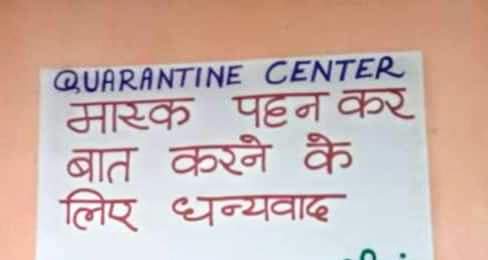 QUARANTINE CENTER
मास्क पहन कर
बात करने के
लिए धन्यवाद